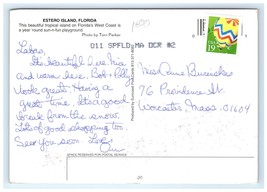 ESTERO ISLAND, FLORIDA
This beautiful tropical island on Florida's West Coast is
a year 'round sun-n-fun playground.
Photo by Tom Parker
011 SPFLD MA DCR #2
19
It's beautiful here. Nice
and warm here. Bob + 
look great. Having a
great time. It's a good
break from the snow.
Lots of good shopping too.
See you soon. Love
Ann
76 Providence St
Worcester, Mass. 01604